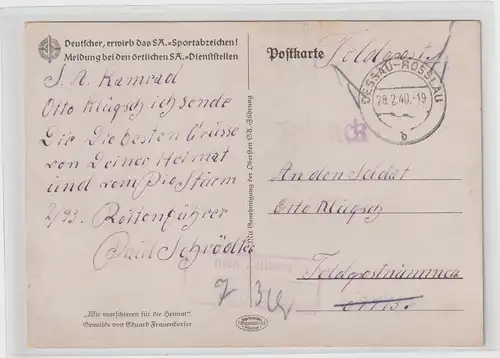 Deutscher, erwirb das SA.-Sportabzeichen!
Meldung bei den örtlichen SA.-Dienststellen
S. A. Kamrad
Otto Klügsch ich sende
Dir Die besten Grüsse
von Deiner Heimat
und vom Pio Sturm
2/93. Rottenführer
Paul Schrödter
"Wir marschieren für die Heimat".
Gemälde von Eduard Frauendorfer
Mit Genehmigung der Obersten SA.-Führung
Postkarte
Feldpost
DESSAU-ROSSLAU
28.2.40.-19
b
An den Soldat
Otto Klügsch
Feldpostnummer